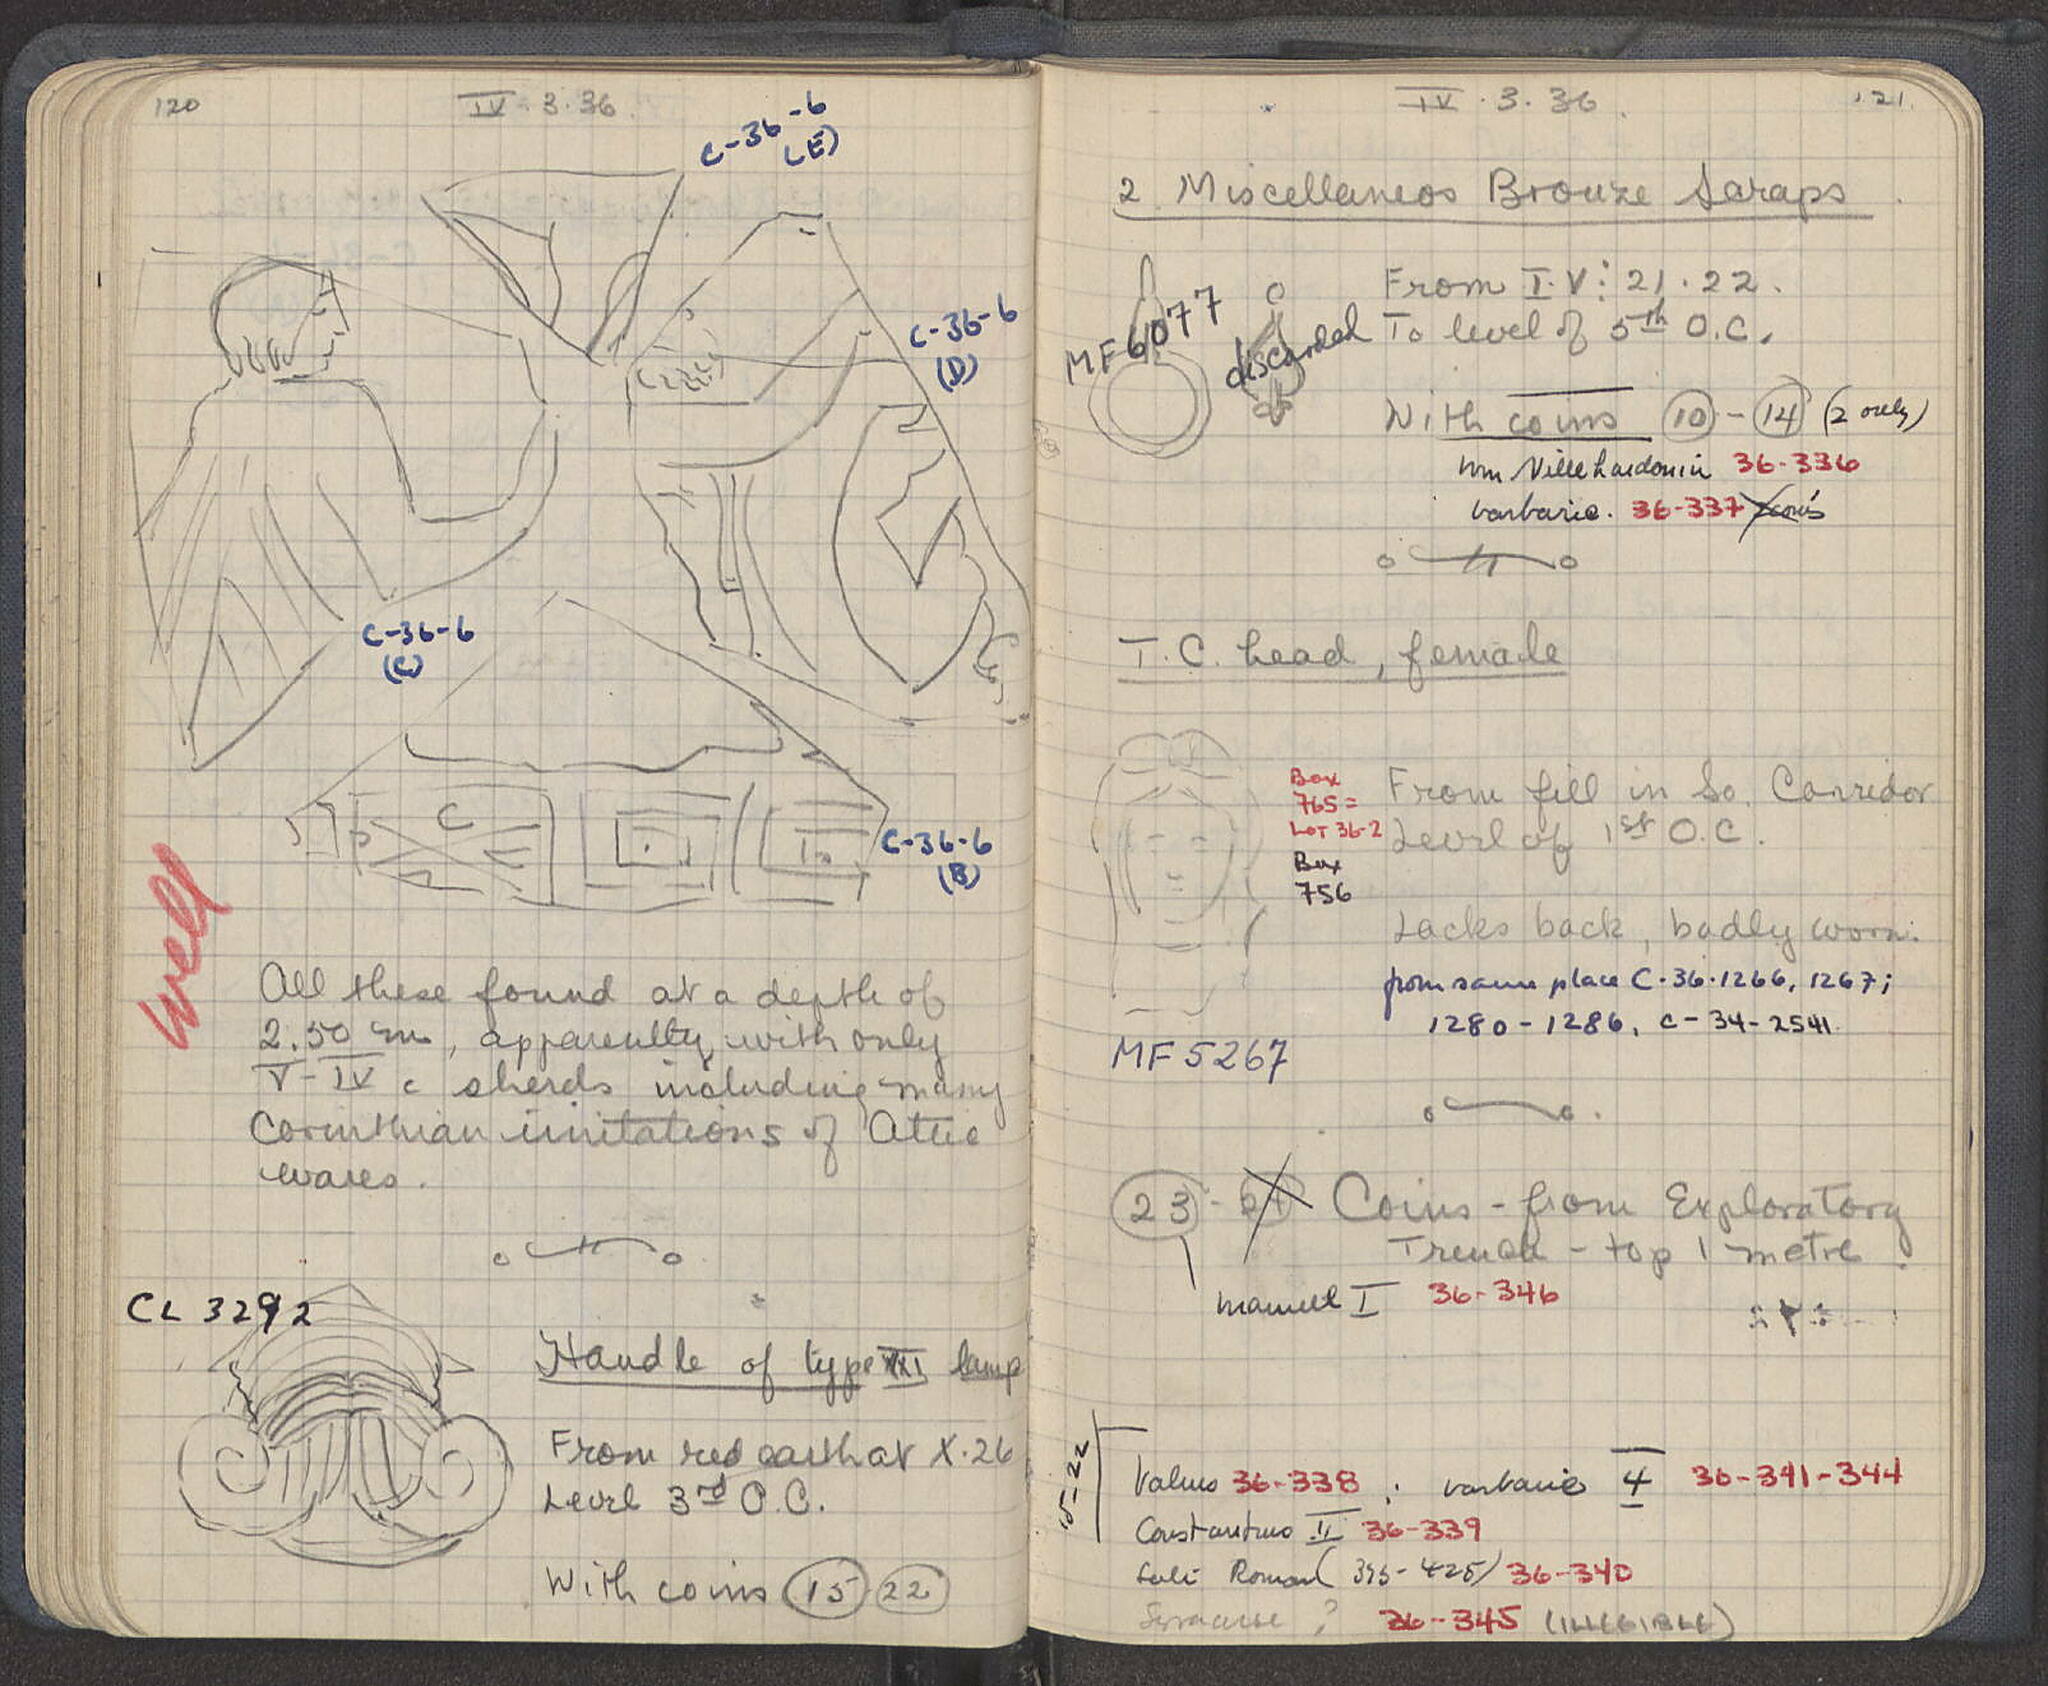 120
IV . 3 . 36
C-36-6
(E)
C-36-6
(D)
C-36-6
(C)
C-36-6
(B)
Well
All these found at a depth of
2.50 m, apparently with only
V-IV c sherds including many
Corinthian imitations of Attic
wares.
CL 3292
Handle of type lamp
From red earth at X.26
Level 3rd O.C.
With coins 15-22
IV . 3 . 36
121
2 Miscellaneos Bronze Scraps
MF 6077
discarded
From I.V: 21.22.
To level of 5th O.C.
With coins 10 - 14 (2 only)
Wm Villehardouin 36-336
barbaric. 36-337
T.C. head, female
Box
765 =
Lot 36-2
Box
756
From fill in So. Corridor
Level of 1st O.C.
Lacks back, badly worn.
from same place C-36-1266, 1267;
1280-1286, C-34-2541.
MF 5267
23 - 24 Coins - from Exploratory
Trench - top 1 metre.
Manuel I 36-346
15-22
Valens 36-338 ; barbaric 4 36-341-344
Constantius II 36-339
Late Roman (395-425) 36-340
? 36-345 (ILLEGIBLE)